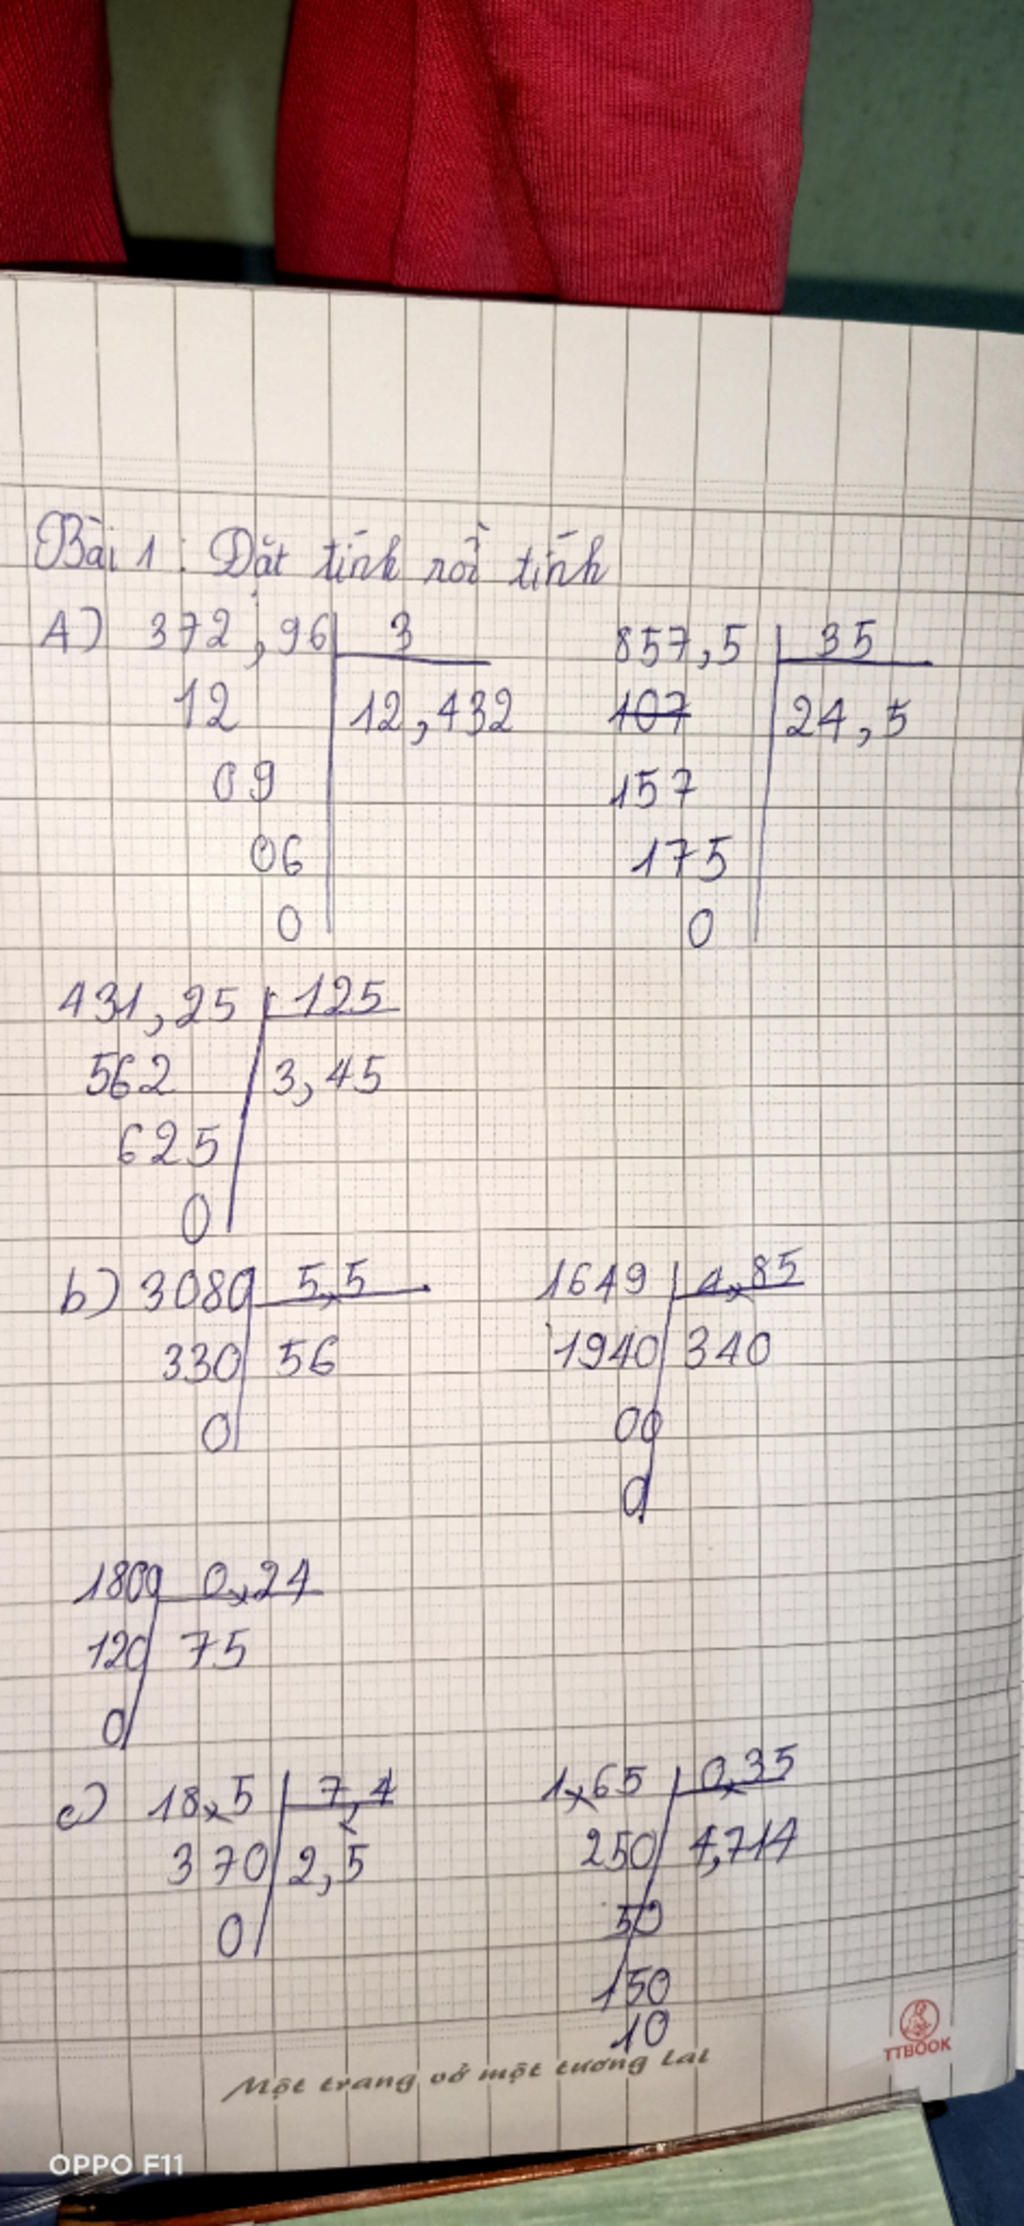 Bài 1 : Đặt tính rồi tính
A) 372,96 3
12 12,432
09
06
0
857,5 35
107 24,5
157
175
0
431,25 125
562 3,45
625
0
b) 3080 5,5
330 56
0
1649 4,85
1940 340
00
0
1800 0,24
120 75
0
c) 18,5 7,4
370 2,5
0
1,65 0,35
250 4,714
50
150
10
Một trang vở một tương lai
TTBOOK
OPPO F11